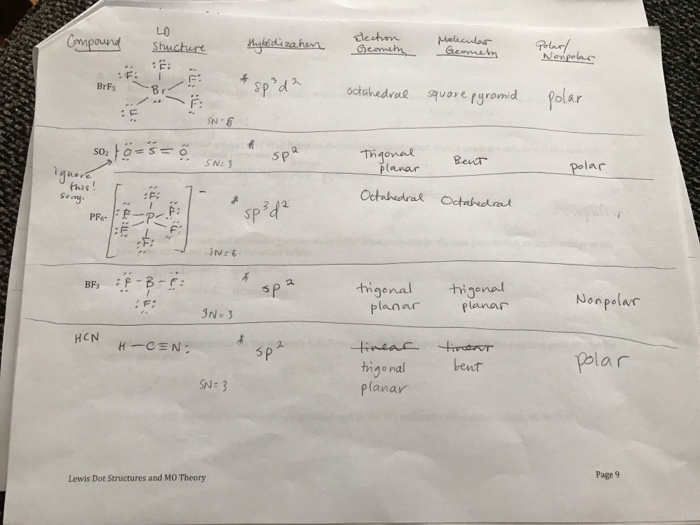 Compound LD Structure Hybridization Electron Geometry Molecular Geometry Polar/Nonpolar
BrF5 :F: :F: Br F: :F F: SN=6 * sp³d² octahedral square pyramid polar
SO2 Ö=S=Ö SN=3 * sp² Trigonal planar Bent polar
ignore this! sorry.
PF6- [:F: :F-P-F: :F F: :F:]- SN=6 * sp³d² Octahedral Octahedral
BF3 :F-B-F: :F: SN=3 * sp² trigonal planar trigonal planar Nonpolar
HCN H-C≡N: SN=3 * sp² linear trigonal planar linear bent polar
Lewis Dot Structures and MO Theory Page 9